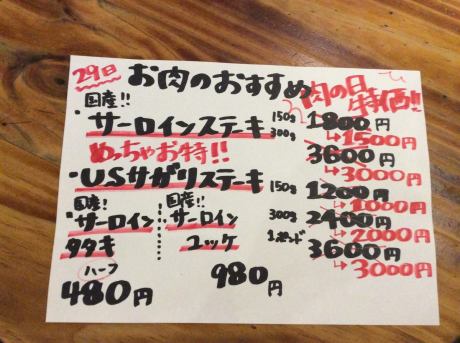 29日 お肉のおすすめ 肉の日特価!!
国産!!
・サーロインステーキ 150g 1800円
→1500円
めっちゃお特!! 300g 3600円
→3000円
・USサガリステーキ 150g 1200円
→1000円
300g 2400円
→2000円
1ポンド 3600円
→3000円
国産!!
・サーロイン
タタキ
ハーフ
480円
国産!!
・サーロイン
ユッケ
980円